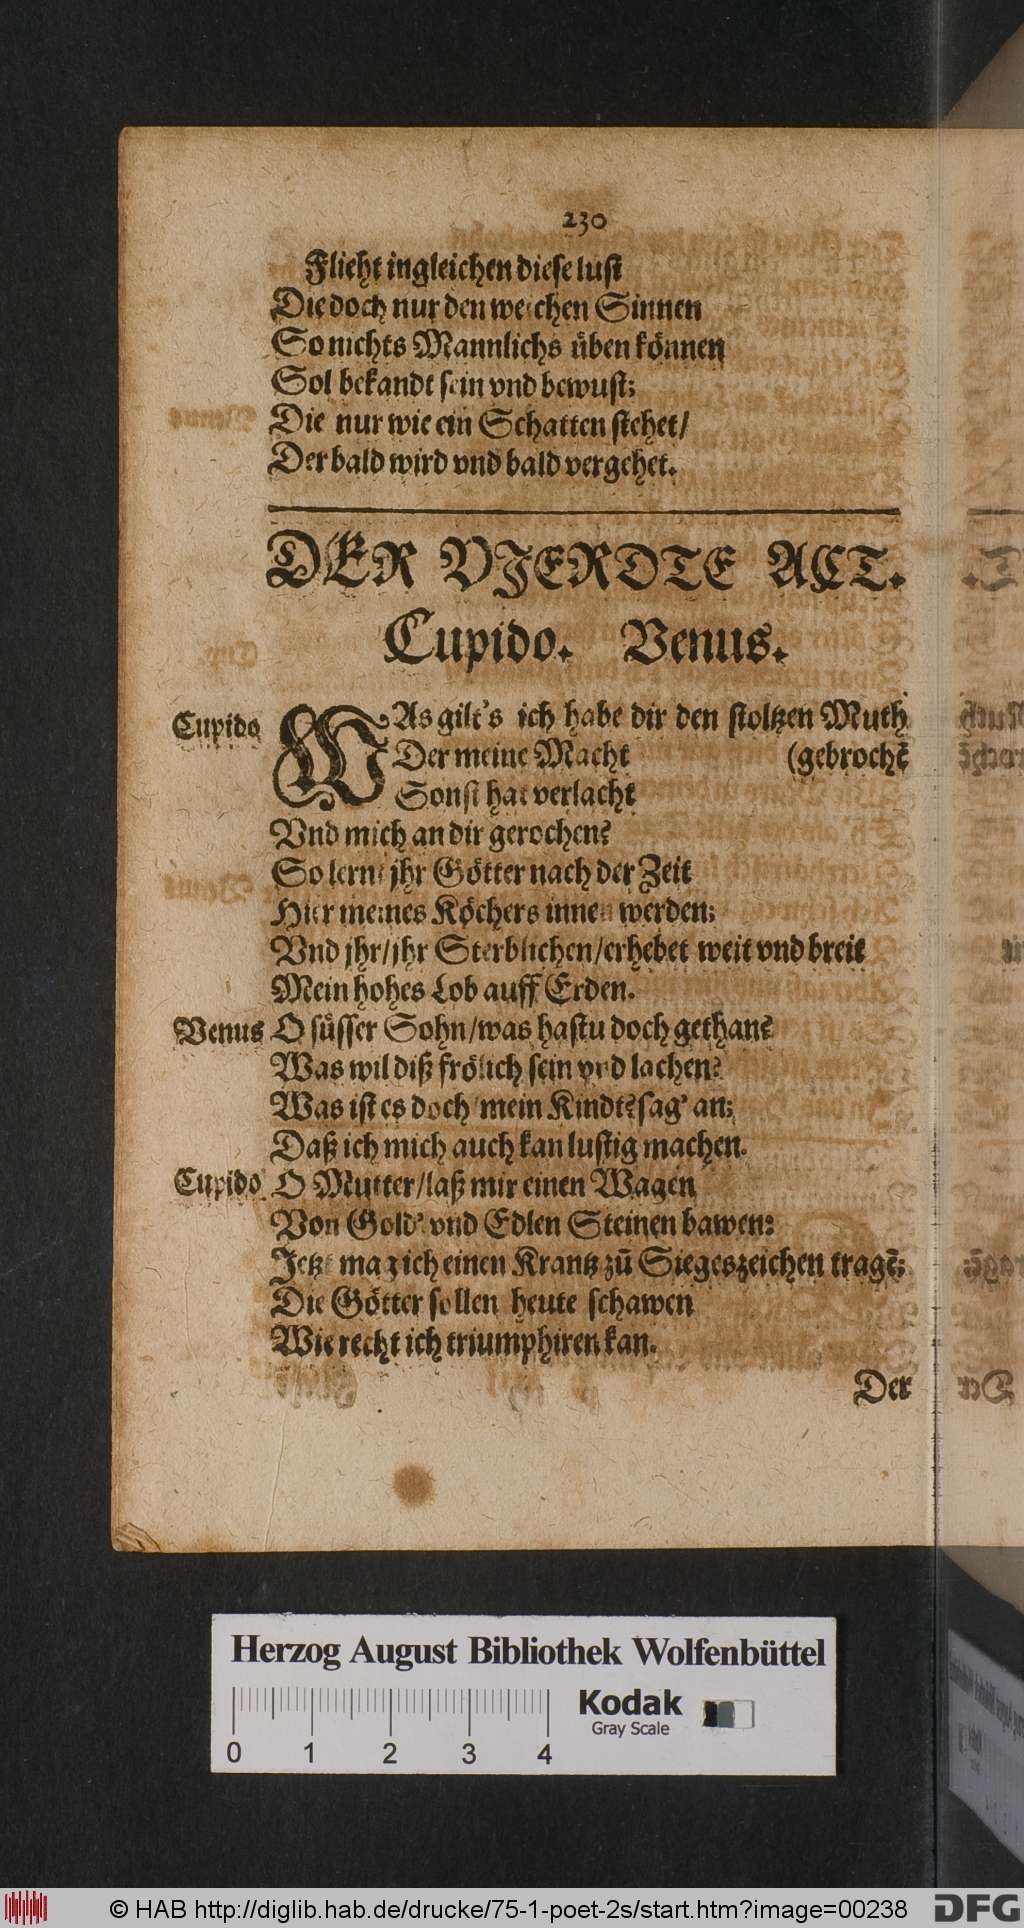 230
Flieht ingleichen diese lust
Die doch nur den weichen Sinnen
So nichts Mannlichs üben können
Sol bekandt sein vnd bewust;
Die nur wie ein Schatten stehet/
Der bald wird vnd bald vergehet.
DER VJERDTE ACT.
Cupido. Venus.
Cupido WAs gilt's ich habe dir den stoltzen Muth
Der meine Macht (gebrochẽ
Sonst hat verlacht
Vnd mich an dir gerochen?
So lernt jhr Götter nach der Zeit
Hier meines Köchers innen werden;
Vnd jhr/jhr Sterblichen/erhebet weit vnd breit
Mein hohes Lob auff Erden.
Venus O süsser Sohn/was hastu doch gethan?
Was wil diß frölich sein vnd lachen?
Was ist es doch/mein Kindt?sag' an;
Daß ich mich auch kan lustig machen.
Cupido O Mutter/laß mir einen Wagen
Von Gold' vnd Edlen Steinen bawen:
Jetzt mag ich einen Krantz zũ Siegeszeichen tragẽ;
Die Götter sollen heute schawen
Wie recht ich triumphiren kan.
Der
Herzog August Bibliothek Wolfenbüttel
Kodak
Gray Scale
0 1 2 3 4
© HAB http://diglib.hab.de/drucke/75-1-poet-2s/start.htm?image=00238
DFG